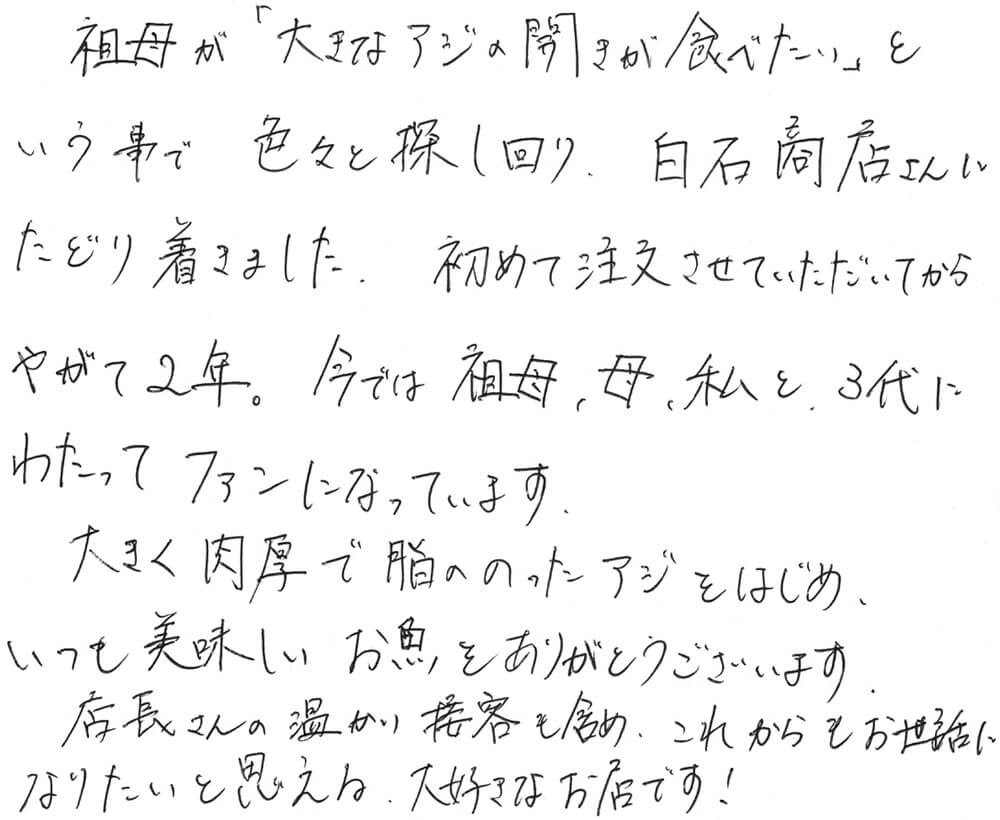 祖母が「大きなアジの開きが食べたい」と
いう事で 色々と探し回り、白石商店さんに
たどり着きました。 初めて注文させていただいてから
やがて2年。 今では祖母、母、私と、3代に
わたって ファンになっています。
大きく肉厚で脂ののったアジをはじめ、
いつも美味しいお魚をありがとうございます。
店長さんの温かい接客も含め、これからもお世話に
なりたいと思える、大好きなお店です!